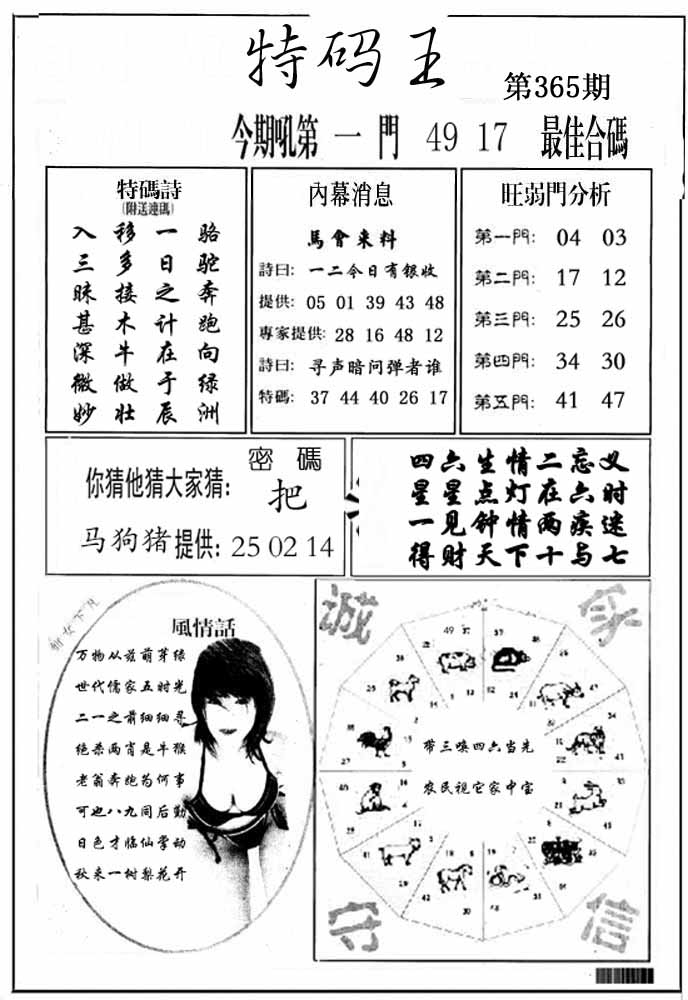 特码王
第365期
今期吼第一門 49 17 最佳合碼
特碼詩
(附送連碼)
骆驼奔跑向绿洲
一日之计在于辰
移多接木牛做壮
入三昧甚深微妙
內幕消息
馬會来料
詩曰: 一二今日有银收
提供: 05 01 39 43 48
專家提供: 28 16 48 12
詩曰: 寻声暗问弹者谁
特碼: 37 44 40 26 17
旺弱門分析
第一門: 04 03
第二門: 17 12
第三門: 25 26
第四門: 34 30
第五門: 41 47
密碼
你猜他猜大家猜: 把
马狗猪提供: 25 02 14
四六生情二忘义
星星点灯在六时
一见钟情两疾迷
得财天下十与七
風情話
万物从兹萌芽绿
世代儒家五时光
二一之前细细寻
绝杀两肖是牛猴
老翁奔跑为何事
可迎八九同后勤
日色才临仙掌动
秋来一树梨花开
诚
家
带三唤四六当先
农民视它家中宝
守
信